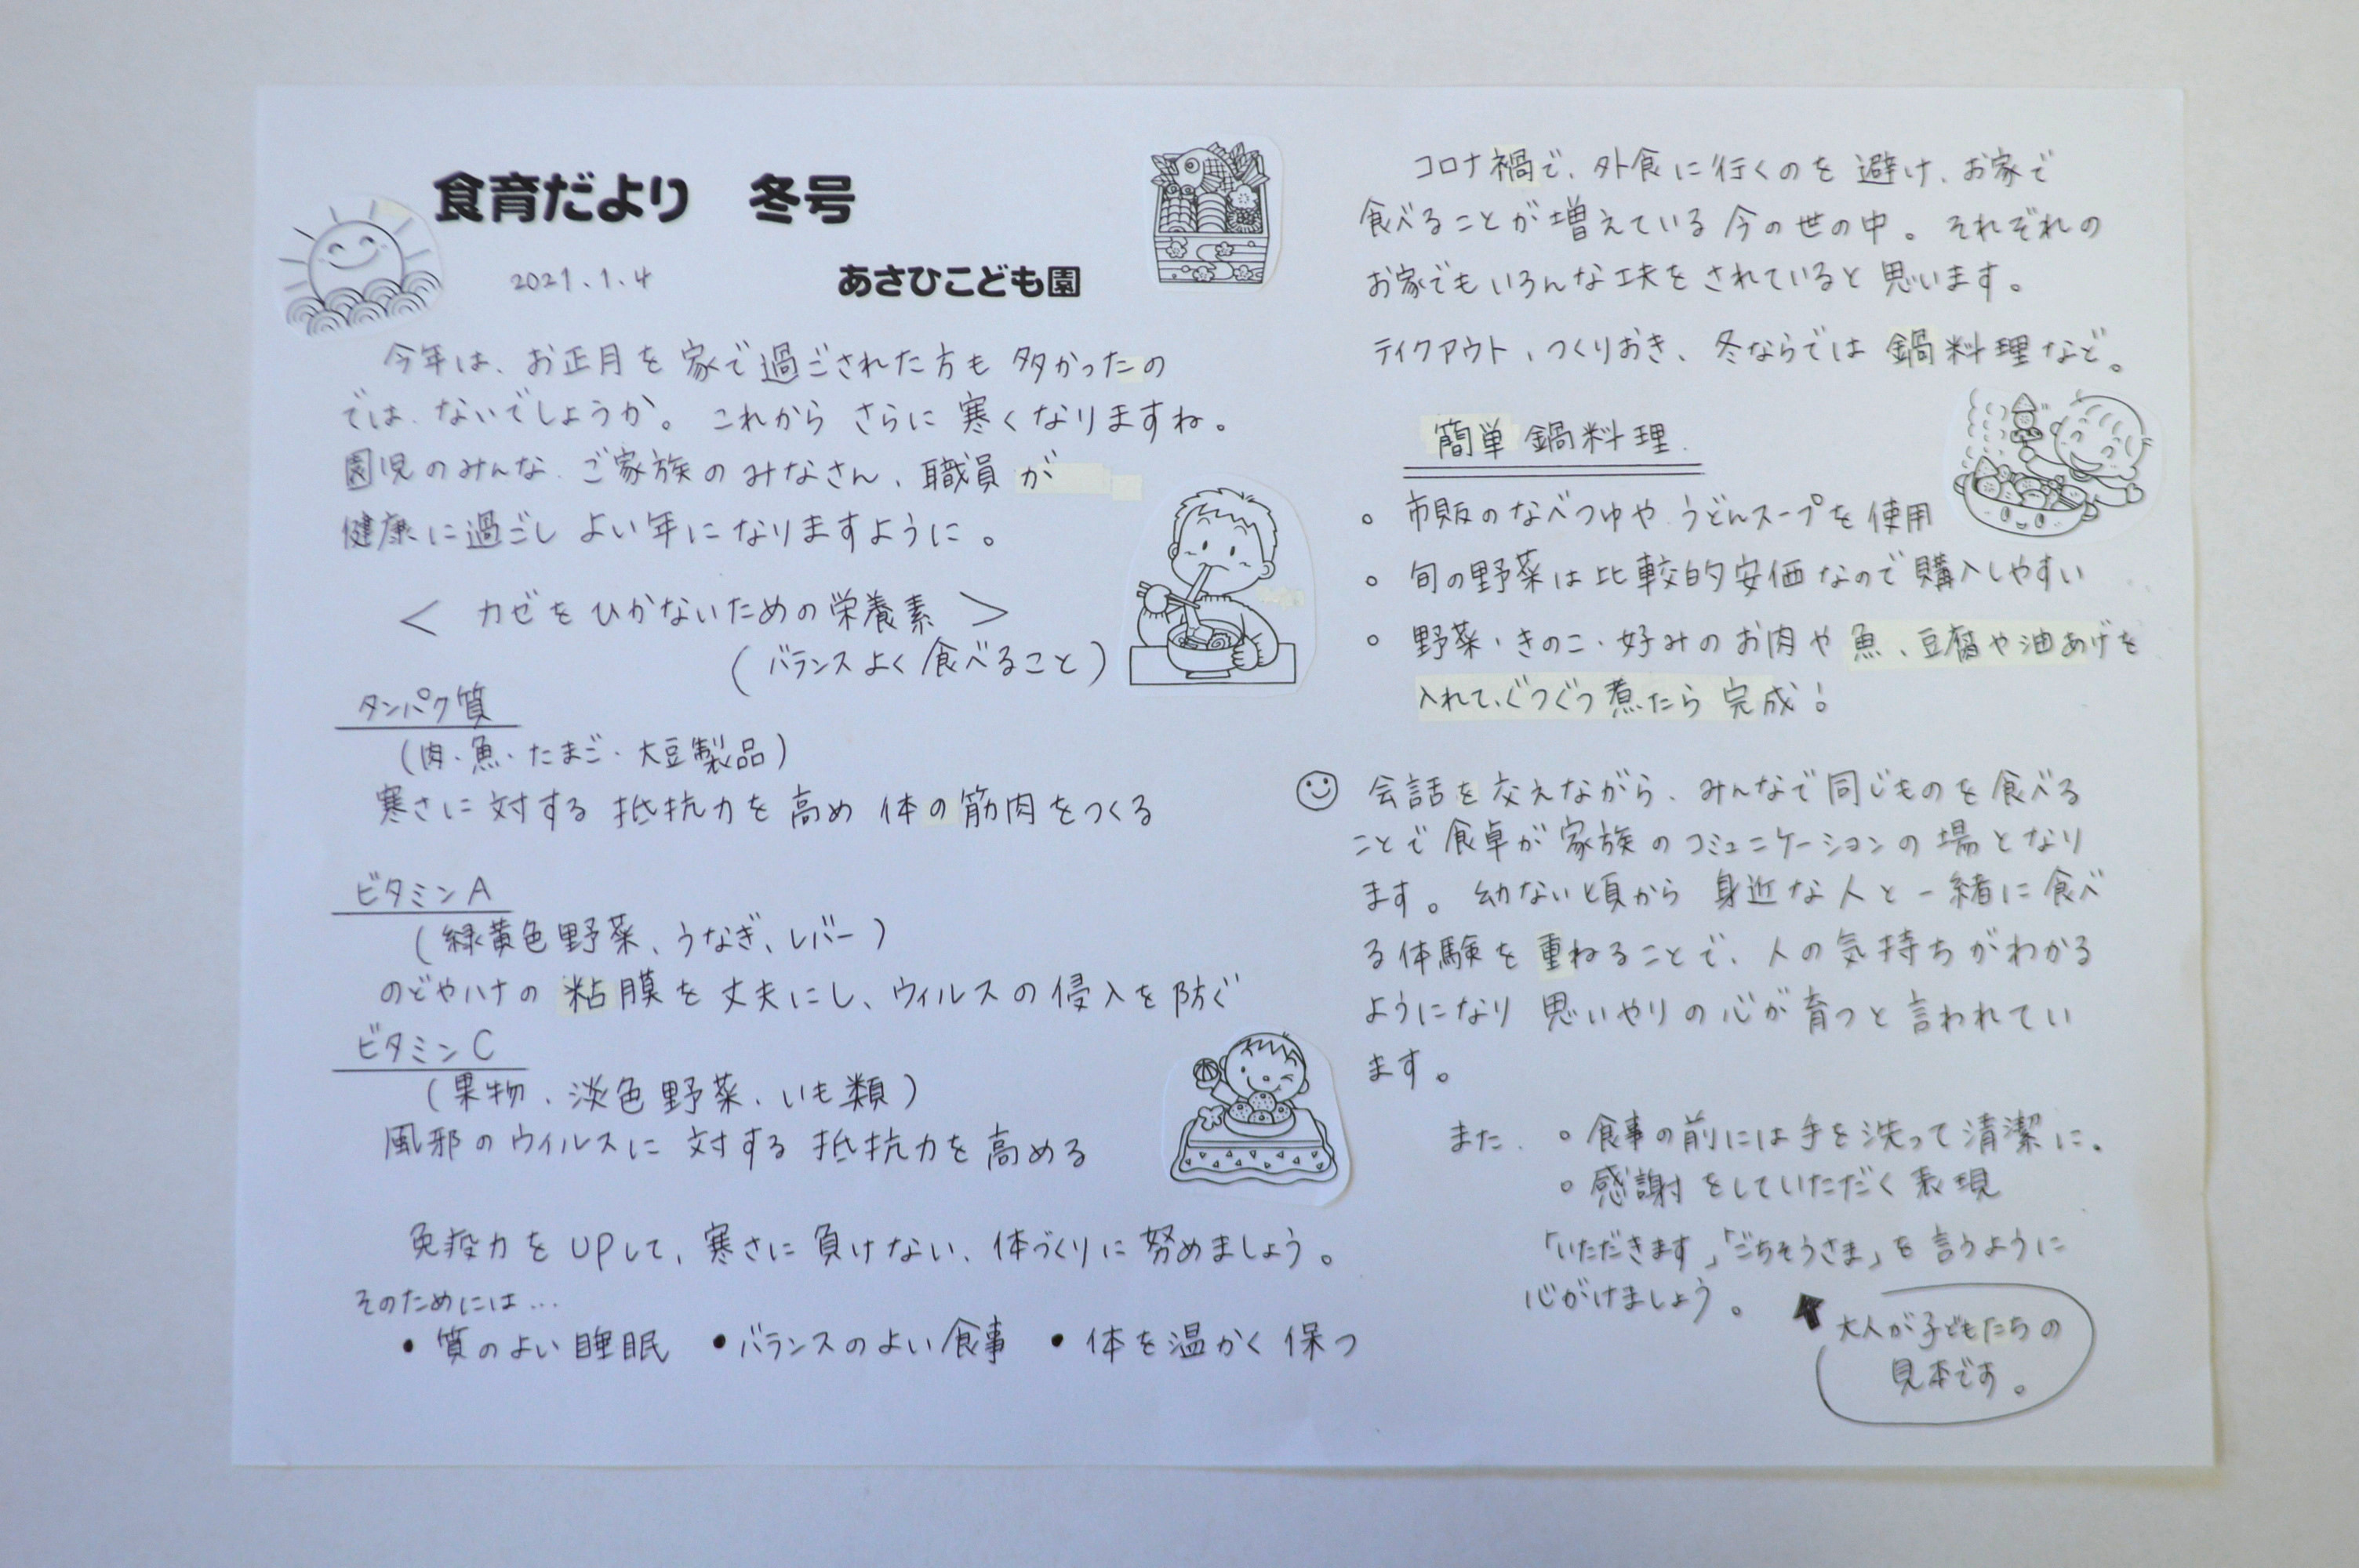 食育だより 冬号
2021.1.4 あさひこども園
今年は、お正月を家で過ごされた方も多かったの
では、ないでしょうか。これからさらに寒くなりますね。
園児のみんな、ご家族のみなさん、職員が
健康に過ごしよい年になりますように。
＜ カゼをひかないための栄養素 ＞
（バランスよく食べること）
タンパク質
（肉・魚・たまご・大豆製品）
寒さに対する抵抗力を高め体の筋肉をつくる
ビタミンA
（緑黄色野菜、うなぎ、レバー）
のどやハナの粘膜を丈夫にし、ウィルスの侵入を防ぐ
ビタミンC
（果物、淡色野菜、いも類）
風邪のウィルスに対する抵抗力を高める
免疫力をUPして、寒さに負けない、体づくりに努めましょう。
そのためには…
・質のよい睡眠 ・バランスのよい食事 ・体を温かく保つ
コロナ禍で、外食に行くのを避け、お家で
食べることが増えている今の世の中。それぞれの
お家でもいろんな工夫をされていると思います。
テイクアウト、つくりおき、冬ならでは鍋料理など。
簡単鍋料理
。市販のなべつゆや、うどんスープを使用
。旬の野菜は比較的安価なので購入しやすい
。野菜・きのこ・好みのお肉や魚、豆腐や油あげを
入れて、ぐつぐつ煮たら完成！
会話を交えながら、みんなで同じものを食べる
ことで食卓が家族のコミュニケーションの場となり
ます。幼ない頃から身近な人と一緒に食べ
る体験を重ねることで、人の気持ちがわかる
ようになり思いやりの心が育つと言われてい
ます。
また、。食事の前には手を洗って清潔に。
。感謝をしていただく表現
「いただきます」「ごちそうさま」を言うように
心がけましょう。
大人が子どもたちの
見本です。